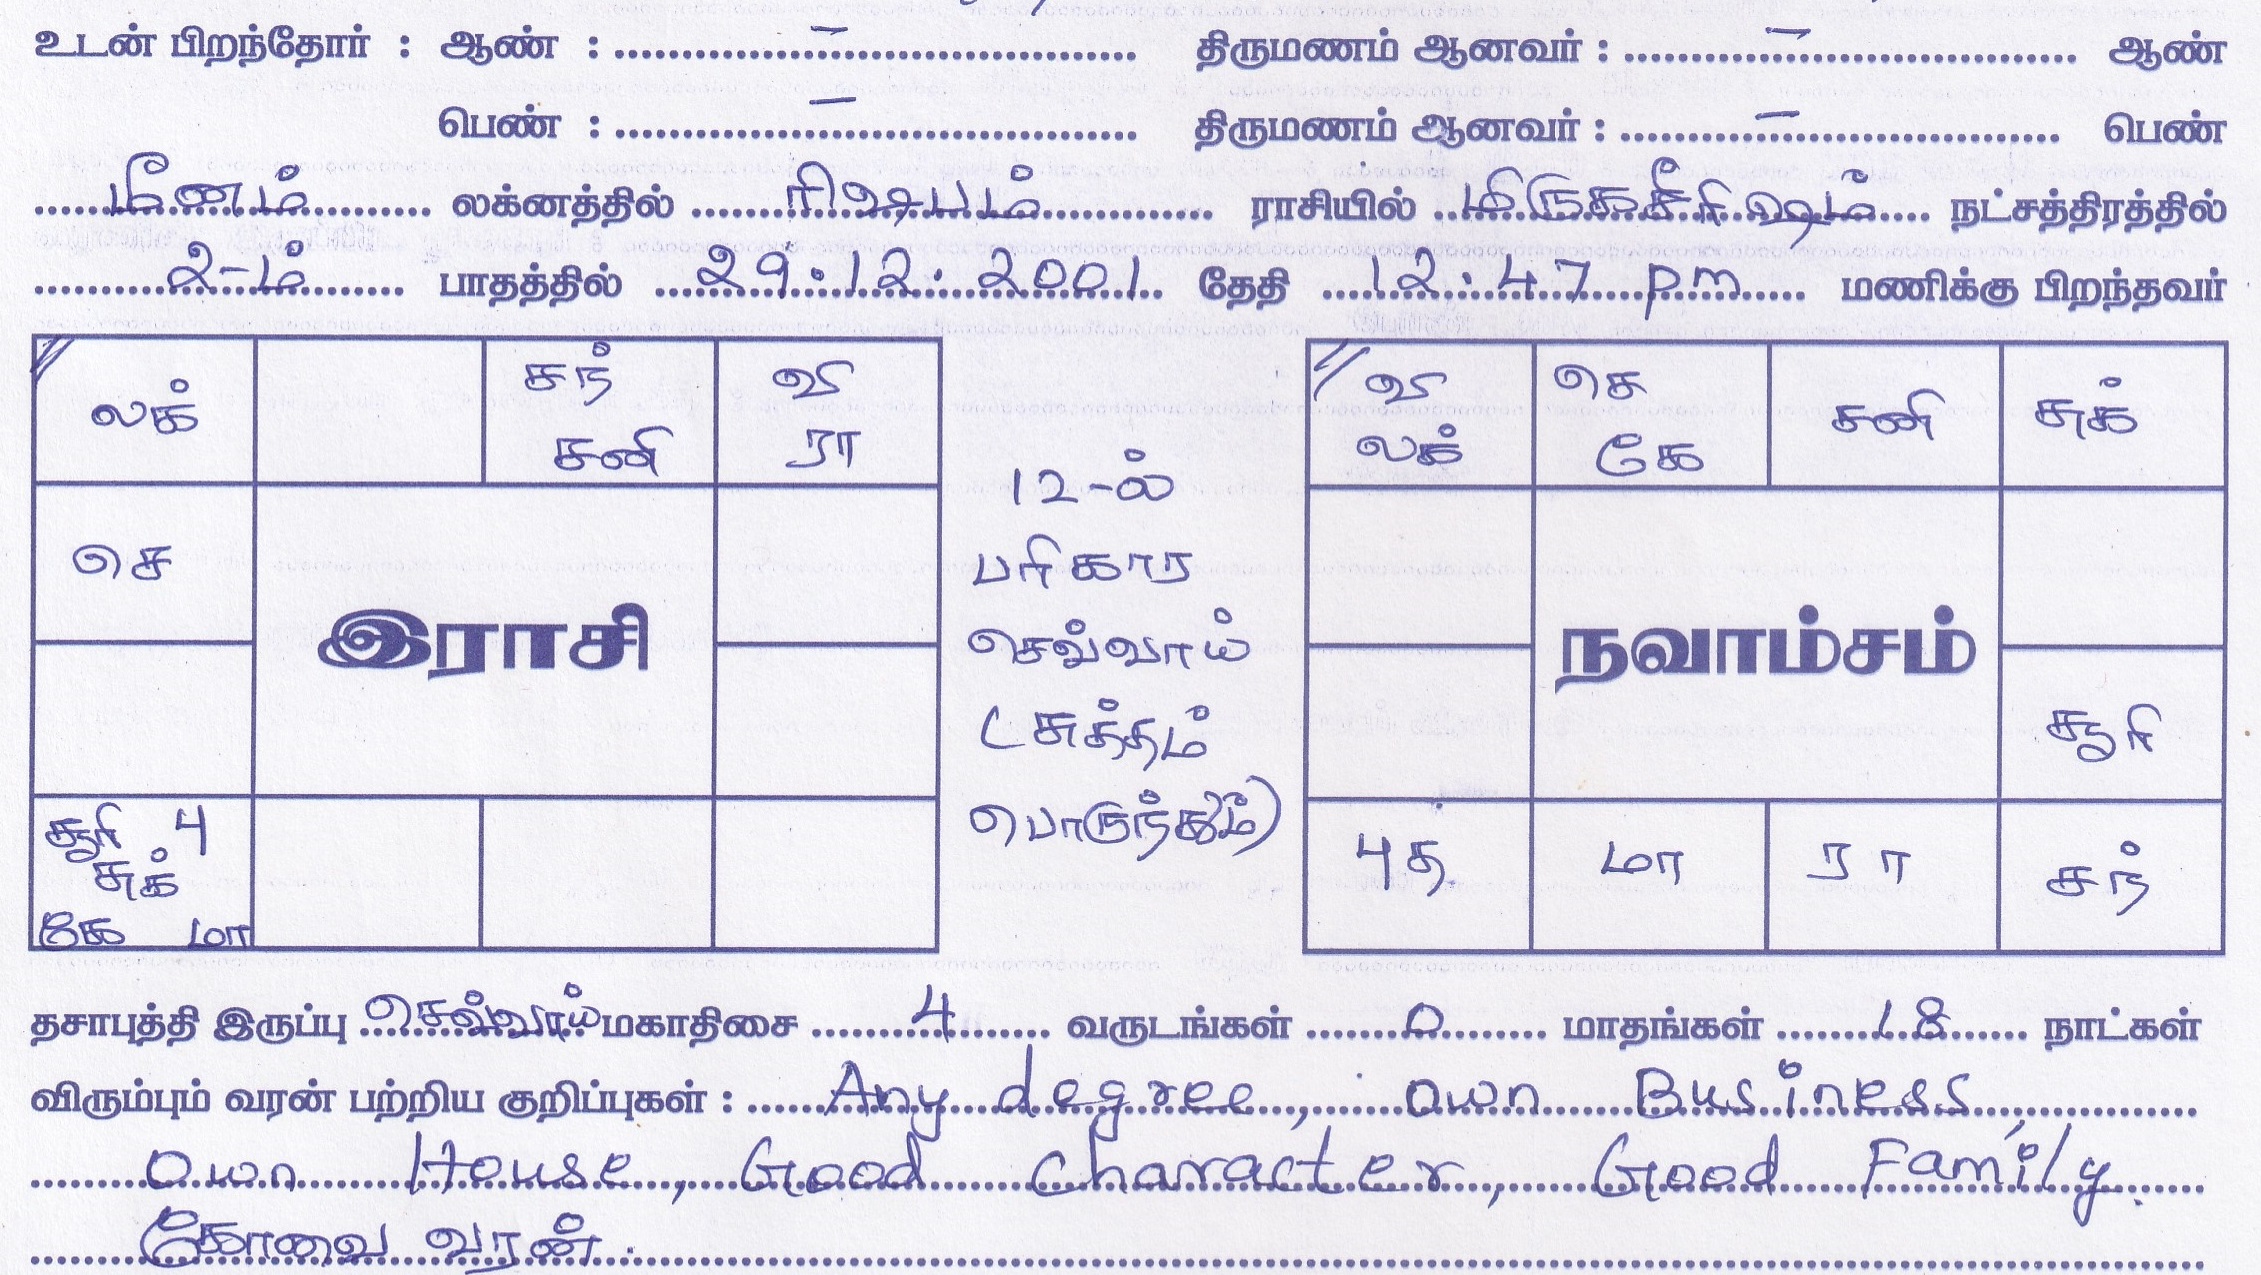 உடன் பிறந்தோர் : ஆண் : – திருமணம் ஆனவர் : – ஆண்
பெண் : – திருமணம் ஆனவர் : – பெண்
மீனம் லக்னத்தில் ரிஷபம் ராசியில் மிருகசீரிஷம் நட்சத்திரத்தில்
2-ம் பாதத்தில் 29:12:2001 தேதி 12:47 pm மணிக்கு பிறந்தவர்
லக்
சந் சனி
வி ரா
செ
இராசி
சூரி 4
சுக்
கே மா
12-ல்
பரிகார
செவ்வாய்
(சுத்தம்
பொருந்தும்)
வி லக்
செ கே
சனி
சுக்
நவாம்சம்
சூரி
4த
மா
ரா
சந்
தசாபுத்தி இருப்பு செவ்வாய் மகாதிசை 4 வருடங்கள் 0 மாதங்கள் 18 நாட்கள்
விரும்பும் வரன் பற்றிய குறிப்புகள் : Any degree, own Business,
Own House, Good Character, Good Family.
கோவை வரன்.